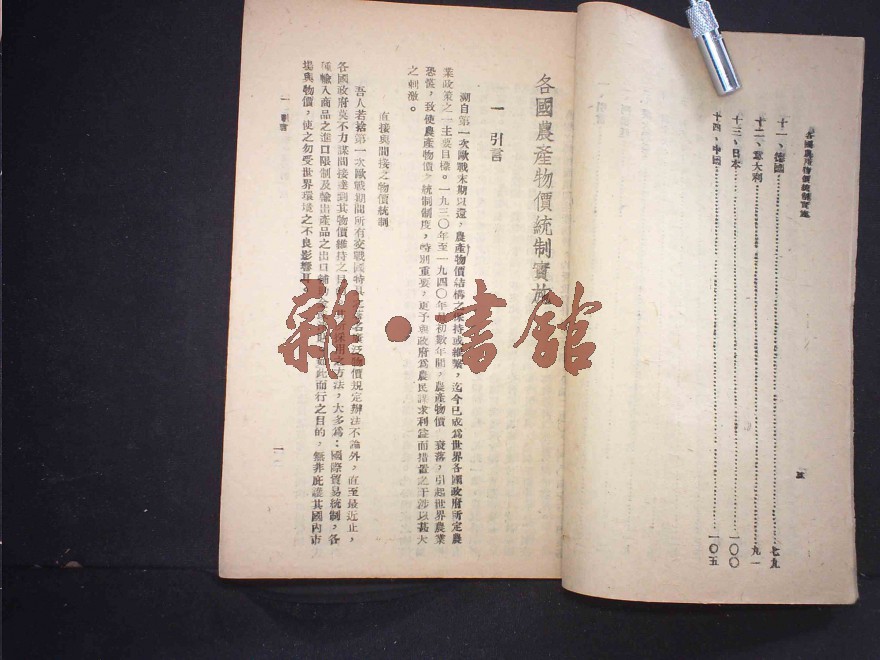 各國農產物價統制實施
十一、德國……七九
十二、意大利……九一
十三、日本……一〇〇
十四、中國……一〇五
各國農產物價統制實施
一 引言
溯自第一次歐戰末期以還，農產物價結構之維持或維繫，迄今已成為世界各國政府所定農
業政策之一主要目標。一九三〇年至一九四〇年最初數年間，農產物價 衰落，引起世界農業
恐慌，致使農產物價，統制制度，特別重要，更予與政府為農民謀求利益而措置之干涉以甚大
之刺激。
直接與間接之物價統制
吾人若捨第一次歐戰期間所有交戰國特 物價規定辦法不論外，直至最近止，
各國政府莫不力謀間接達到其物價維持之目 採用之方法，大多為：國際貿易統制，各
種輸入商品之進口限制及輸出產品之出口 此而行之目的，無非庇護其國內市
場與物價，使之勿受世界環境之不良影響耳。
一 引言
一
雜·書館